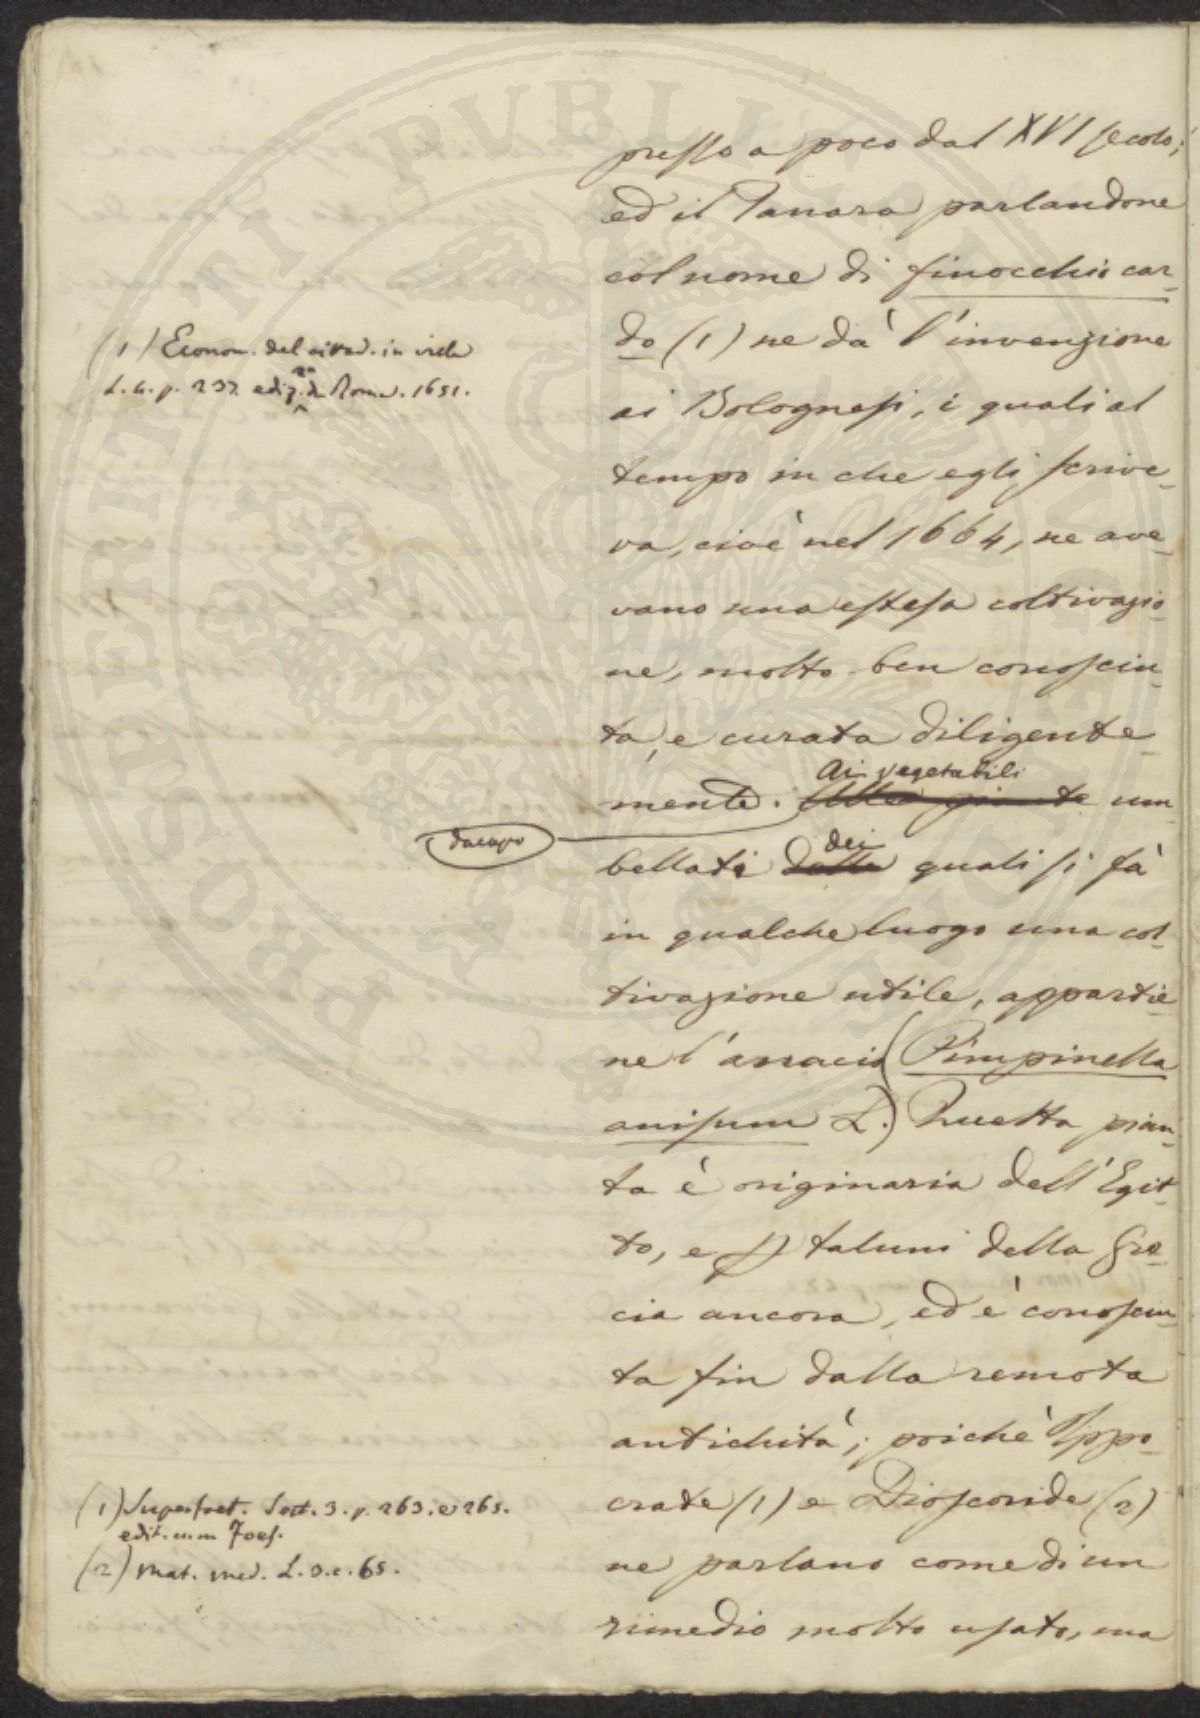 presso a poco dal XVI secolo;
ed il Tanara parlandone
col nome di finocchio car-
do (1) ne dà l'invenzione
ai Bolognesi, i quali al
tempo in che egli scrive-
va, cioè nel 1664, ne ave-
vano una estesa coltivazio-
ne, molto ben conosciu-
ta, e curata diligente-
mente. Ai vegetabili um-
bellati dei quali si fà
in qualche luogo una col-
tivazione utile, appartie-
ne l'anacio (Pimpinella
anisum L.) Questa pian-
ta è originaria dell'Egit-
to, e p taluni della Gre-
cia ancora, ed è conosciu-
ta fin dalla remota
antichità; poichè Ippo-
crate (1) e Dioscoride (2)
ne parlano come di un
rimedio molto usato, ma
(1) Econom. del cittad. in villa
L. 4. p. 237 ediz. di Roma. 1651.
dacapo
(1) Superfoet. Sect. 3. p. 263. e 265.
edit. cum Foes.
(2) Mat. med. L. 3. c. 65.
PROSPERITATI PUBLICAE